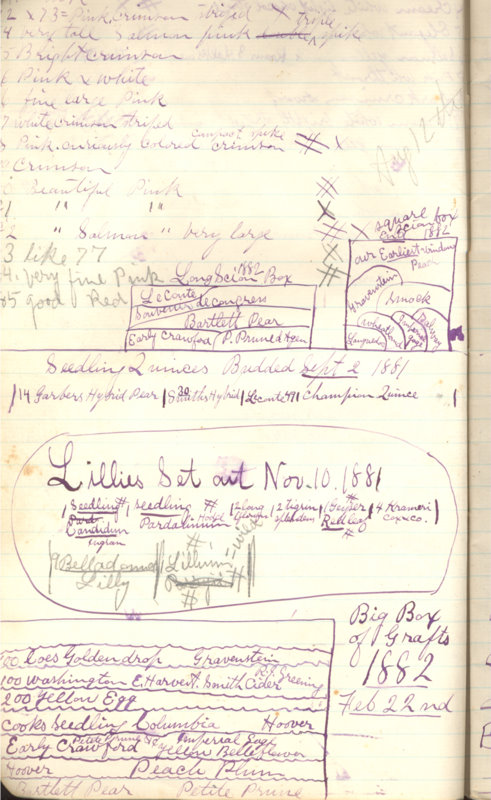 2 x 73 = Pink crimson striped x triple
4 very tall Salmon pink spike
5 Bright crimson
6 Pink & white
6 fine large Pink
7 white crimson striped
8 Pink. curiously colored crimson # x
compact spike
9 Crimson
0 Beautiful Pink #
1 " " "
2 " Salmon " very large #
3 like 77
4. very fine Pink
85 good Red
Aug 12th
Long Scion Box
1882
Le Conte
Souvenir de congress
Bartlett Pear
Early Crawford P. Pruned Agen
square box
Scion
1882
our Earliest Windsor
Pear
Gravenstein
Smock
Wheatland
Imperial gage
Seedling Quinces Budded Sept 2 1881
14 Garbers Hybrid Pear | 20 Smiths Hybrid | Leconte 49 | Champion Quince
Lillies Set out Nov. 10. 1881
Seedling # | seedling # | 2 long | 2 tigrin | Geyser | 4 Krameri
Pard Candidum Pardalinum Hood splendens Red Leaf coxrco.
9 Belladonna | Lillium
Lilly
100 Coes Golden drop Gravenstein
100 Washington E. Harvest. Smith Cider R. I. Greening
200 Yellow Egg
Cooks Seedling Columbia Hoover
Petite Prune Imperial Gage
Early Crawford Yellow Belleflower
Hoover Peach Plum
Bartlett Pear Petite Prune
Big Box
of Grafts
1882
Feb 22nd